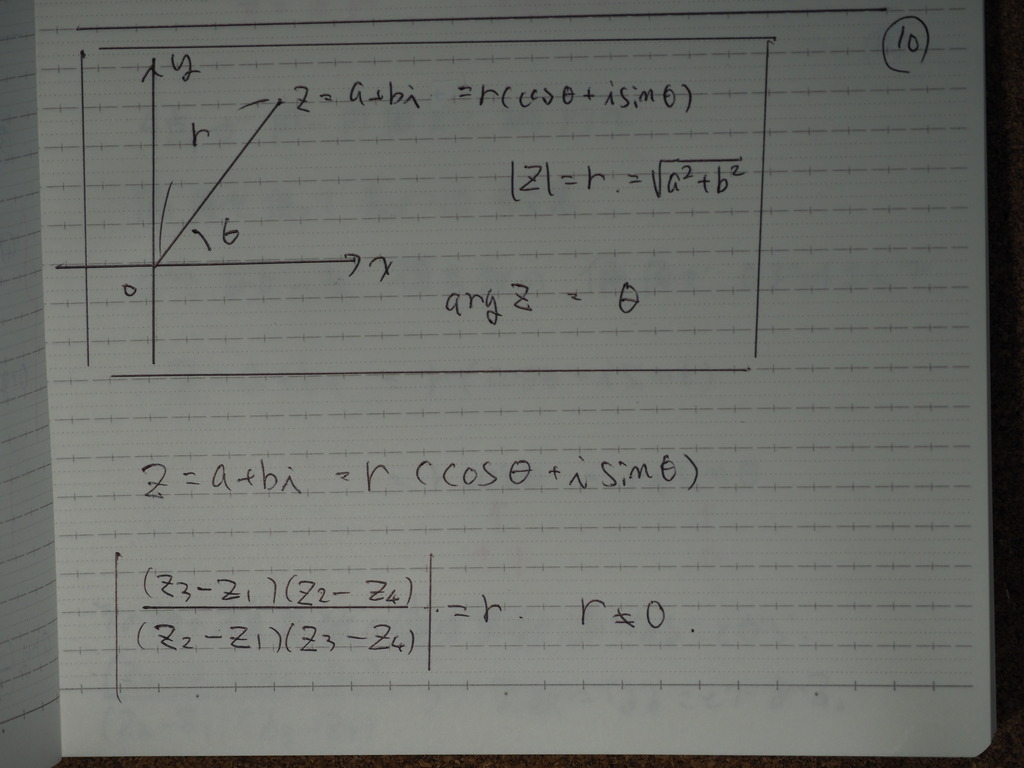 ⑩
y
z = a+bi = r(cosθ + i sinθ)
r
|z| = r. = √a²+b²
θ
x
0
arg z = θ
z = a+bi = r (cosθ + i sinθ)
|(z₃-z₁)(z₂-z₄)/(z₂-z₁)(z₃-z₄)| = r. r≠0.